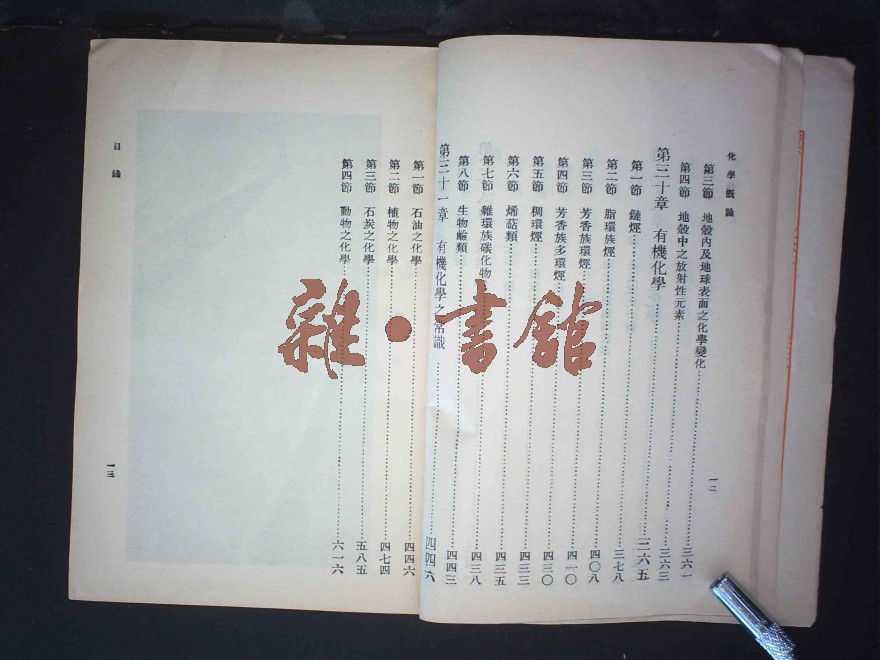 化學概論
一二
第三節 地殼內及地球表面之化學變化 三六一
第四節 地殼中之放射性元素 三六三
第三十章 有機化學 三六五
第一節 鏈烴 三七八
第二節 脂環烴 四〇八
第三節 芳香族環烴 四一〇
第四節 芳香族多環烴 四三〇
第五節 稠環烴 四三三
第六節 烯萜類 四三五
第七節 雜環族碳化物 四三八
第八節 生物鹼類 四四三
第三十一章 有機化學之常識 四四六
目錄
一三
第一節 石油之化學 四四六
第二節 植物之化學 四七四
第三節 石炭之化學 五八五
第四節 動物之化學 六一六
雜·書館